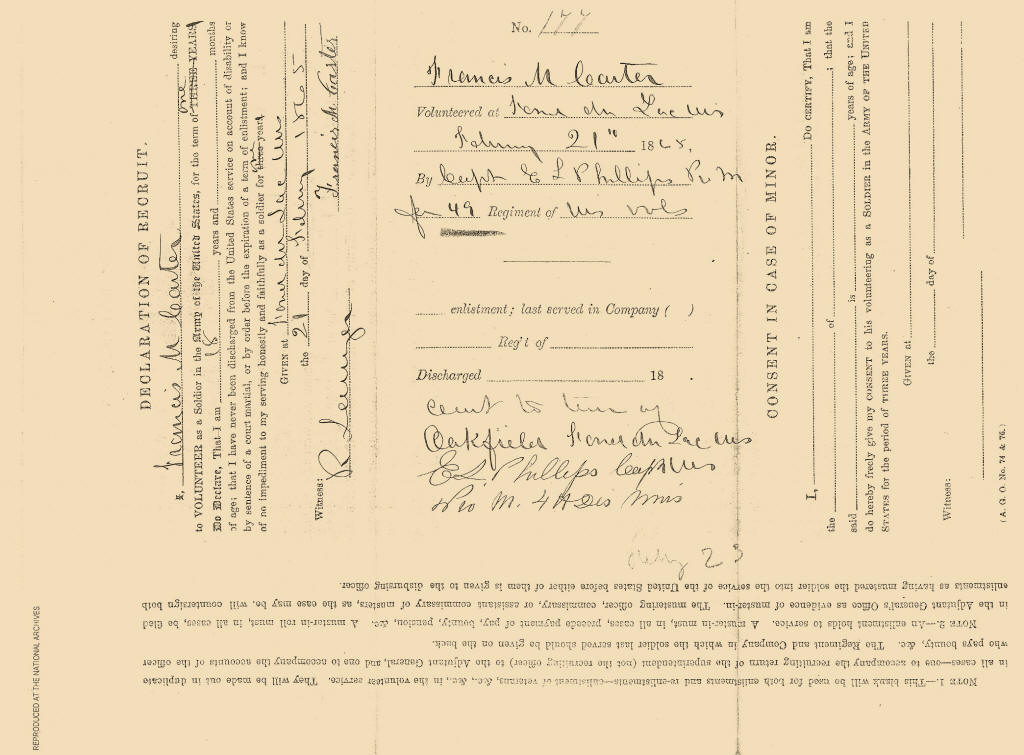 No. 177
Francis M Carter
Volunteered at Fond du Lac Wis
February 21" 1865,
By Capt E L Phillips Pr. M
for 49 Regiment of Wis vols
enlistment; last served in Company ( )
Reg't of
Discharged 18 .
town of
Oakfield Fond du Lac Wis
E L Phillips Capt
Pro M. 4th Dis Wis
23
DECLARATION OF RECRUIT.
I, Francis M Carter desiring
to VOLUNTEER as a Soldier in the Army of the United States, for the term of THREE YEARS one
Do Declare, That I am 18 years and months
of age; that I have never been discharged from the United States service on account of disability or
by sentence of a court martial, or by order before the expiration of a term of enlistment; and I know
of no impediment to my serving honestly and faithfully as a soldier for three years. one
GIVEN at Fond du Lac Wis
the 21 day of February 1865
Witness:
Francis M. Carter
CONSENT IN CASE OF MINOR.
I, Do CERTIFY, That I am
the of ; that the
said is years of age; and I
do hereby freely give my CONSENT to his volunteering as a SOLDIER in the ARMY OF THE UNITED
STATES for the period of THREE YEARS.
GIVEN at
the day of
Witness:
( A. G. O. No. 74 & 76. )
NOTE 1.—This blank will be used for both enlistments and re-enlistments—enlistment of veterans, &c., &c., in the volunteer service. They will be made out in duplicate
in all cases—one to accompany the recruiting return of the superintendent (not the recruiting officer) to the Adjutant General, and one to accompany the accounts of the officer
who pays bounty, &c. The Regiment and Company in which the soldier last served should be given on the back.
NOTE 2.—An enlistment holds to service. A muster-in must, in all cases, precede payment of pay, bounty, pension, &c. A muster-in roll must, in all cases, be filed
in the Adjutant General's Office as evidence of muster-in. The mustering officer, commissary, or assistant commissary of musters, as the case may be, will countersign both
enlistments as having mustered the soldier into the service of the United States before either of them is given to the disbursing officer.
REPRODUCED AT THE NATIONAL ARCHIVES